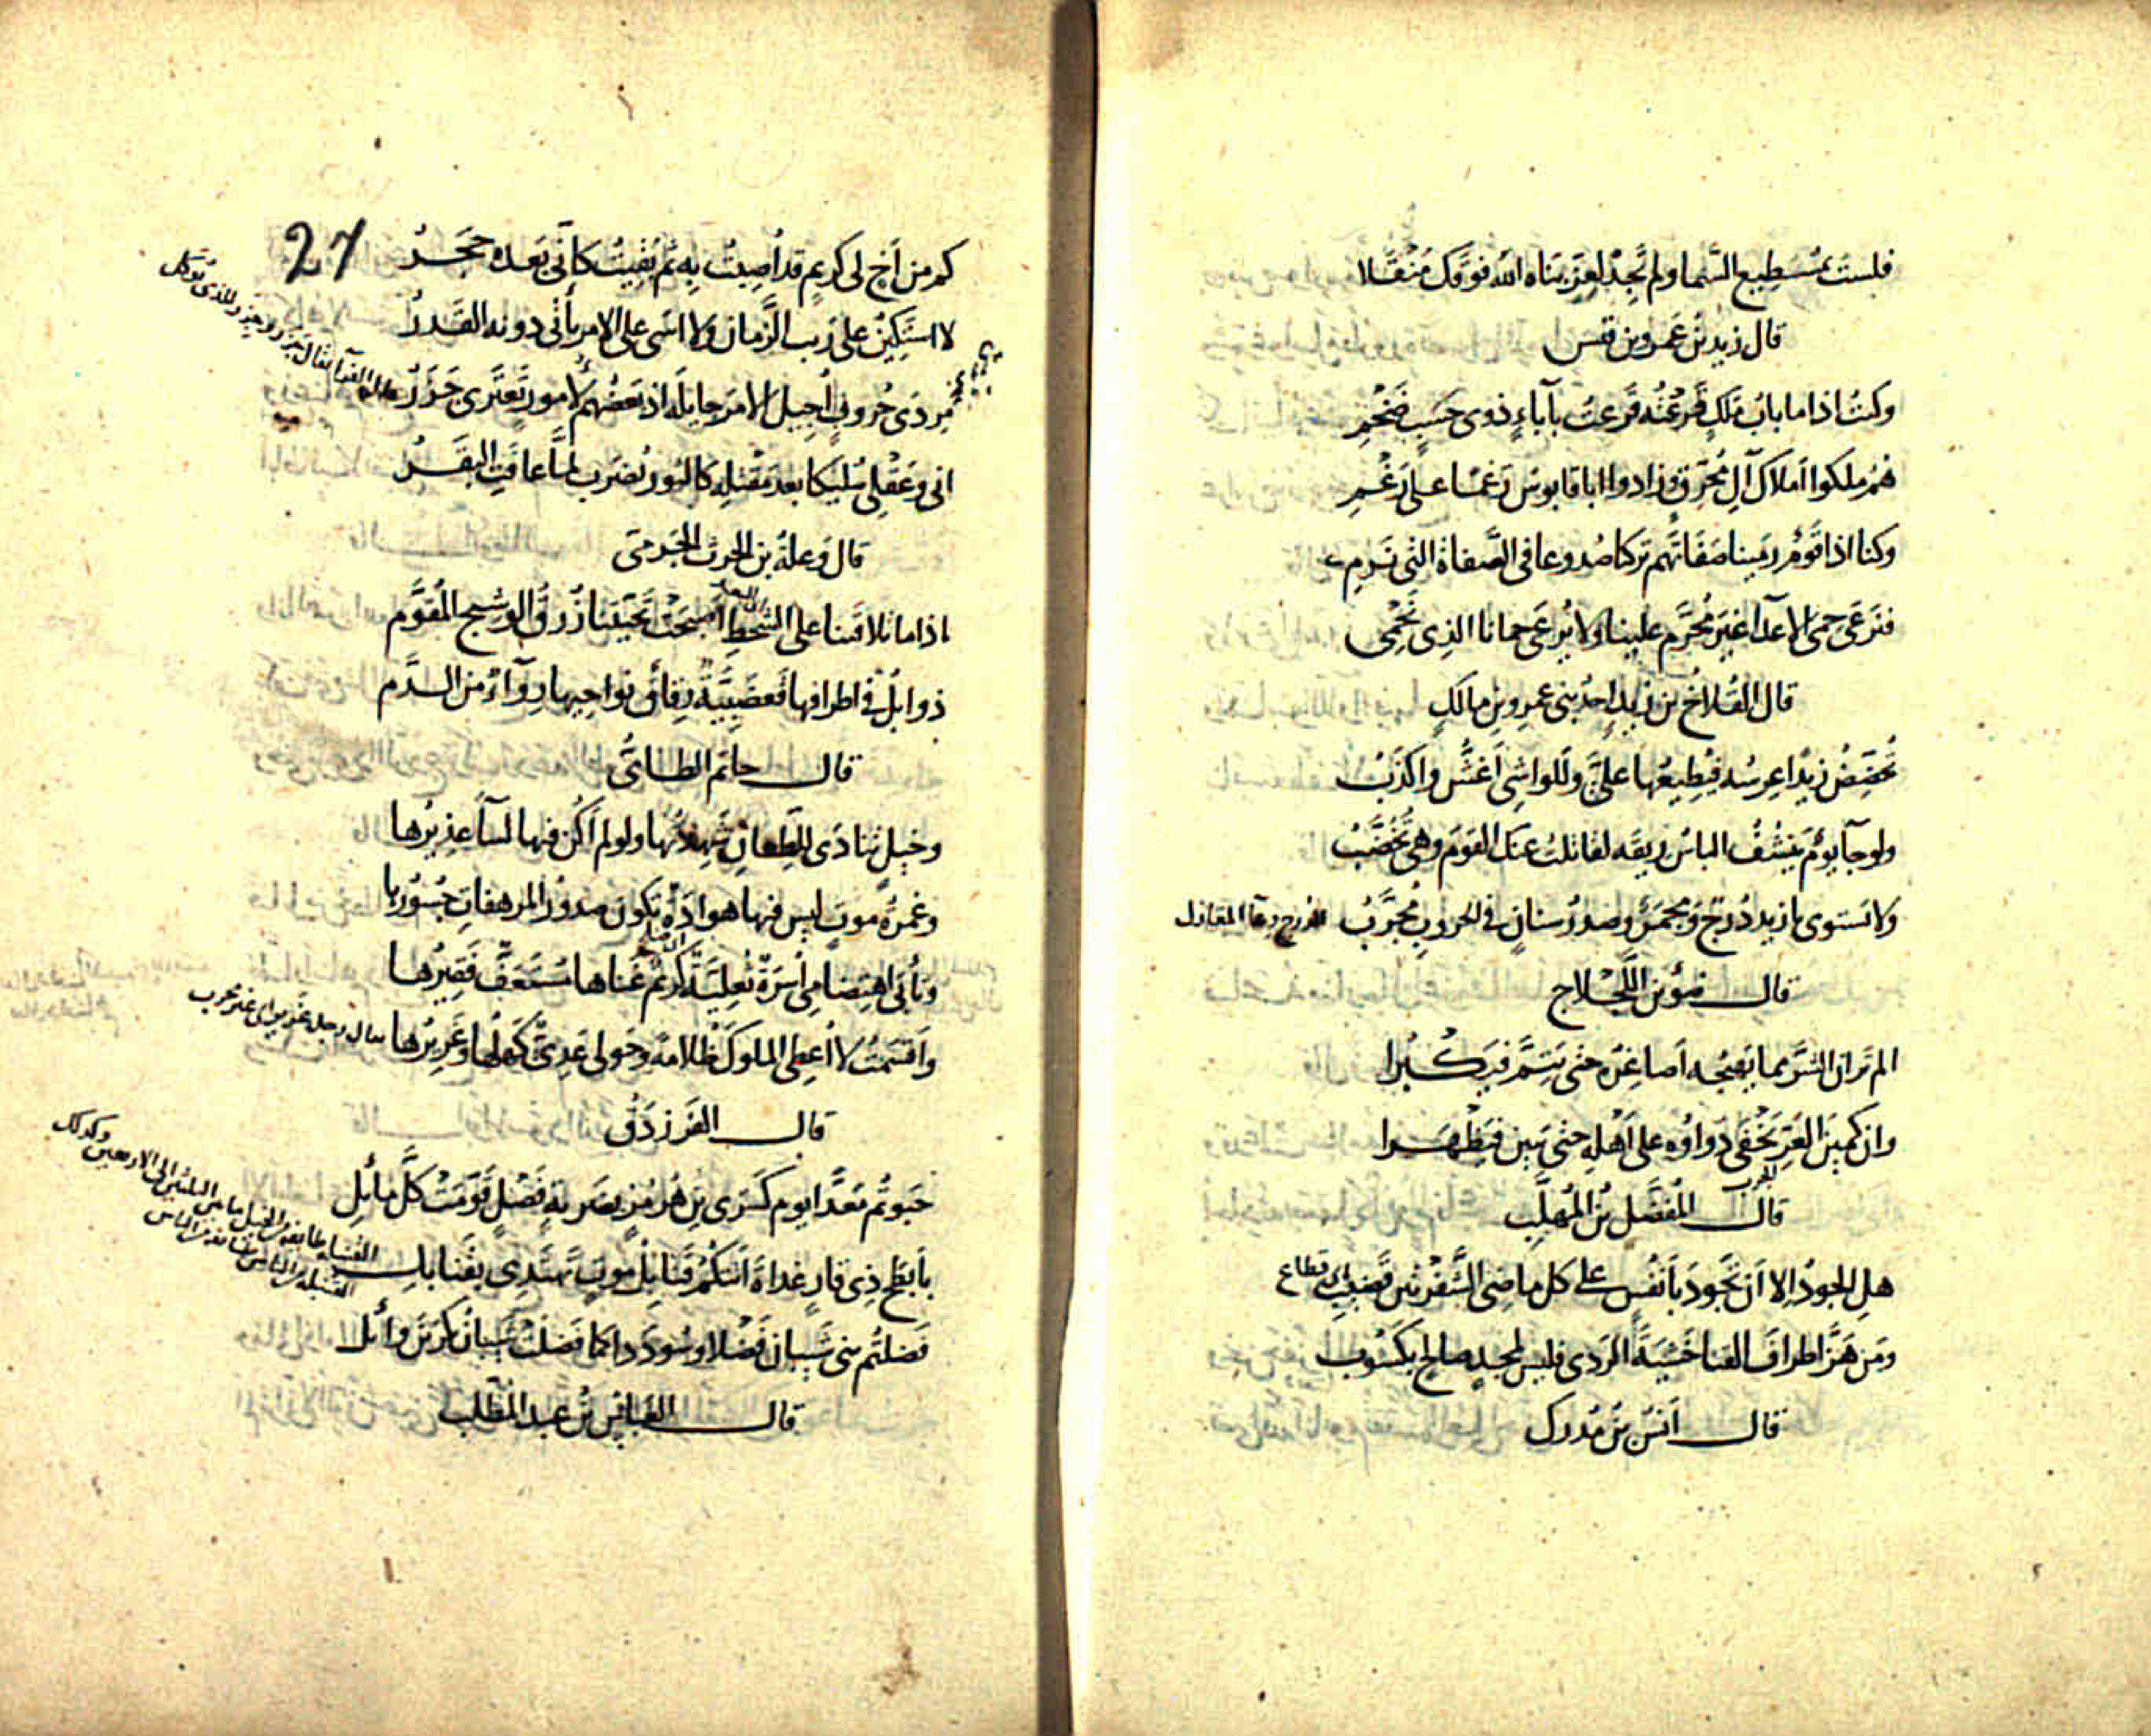 فلستَ بمُسطيع السَّما ولم تجِدْ لعِزٍّ بَناه الله فوقك مَنْقَلا
قال زيد بن عَمرو بن قيس
وكنتُ اذا ما بابُ مَلكٍ قَرَعْتُه قَرَعتُ بآباءٍ ذوى حَسَبٍ ضَخْمِ
هُمُ ملكوا املاك آلِ مُحَرِّقٍ وزادوا ابا قابوسَ رَغمًا على رَغْمِ
وكنا اذا قومٌ رمينا صَفَاتَهم تركنا صُدوعا فى الصَّفاة التى نَرمِى
فنَرعَى حِمَى الاعدآ غيرَ مُحَرَّمٍ علينا ولا يُرعَى حمانا الذى نَحْمِى
قال القُلاخ بن زيد احد بنى عمرو بن مالكٍ
تُحَضِّضُ زيدًا عِرسُه فيُطِيعُها علىَّ وللواشى أغشُّ واكذَبُ
ولو جآ يومٌ يَنشُفُ الباسُ ريقَه لقاتلتُ عنك القومَ وهى تُخَضَّبُ
ولا تستوى يا زيد دُرجٌ ومِجمَرٌ وصدرُ سنانٍ فى الحروبِ مُجرَّبُ
قال ضوْء بن اللَّجْلاج
الم تر ان الشرَّ مما يَهيجُه أصاغِرُه حتى يَتِمَّ فيَكْبُرا
وان كمينَ العَرِّ يَخْفَى دَواؤه على أهْلِه حتى يَبينَ فيَظْهَرا
الجرب
قال المُفضَّل بن المُهلَّب
هلِ الجودُ إلا أن نَجودَ بأنفُسٍ على كل ماضِى الشَّفْرتَين قَضيبِ اى قطاع
ومَن هَزَّ اطرافَ القنا خَشيَةَ الرَدى فليس لمجدٍ صالحٍ بكَسُوبِ
قال أنَسُ بن مُدرِك
27
كم من أخٍ لى كريمٍ قد أُصِبتُ بِه ثم بَقِيتُ كانّى بَعدَه حَجَرُ
لا استَكينُ على رَيب الزَّمانِ ولا اسَى على الامر يأتى دونه القَدَرُ
مِردَى حُروبٍ أُجيل الامرَ جايلَه اذ بعضُهم لأمورٍ تَعتَرى جَزَرُ
انى وعَقْلِى سُلَيكا بعد مَقْتَلِه كالثور يُضرَب لمَّا عافَتِ البقَرُ
قال وَعلةُ بن الحرث الجَرمىّ
اذا ما تلاقَينا على الشحطِ اصبحَتْ تحيّتَنا زُرقُ الوشيج المُقوَّمِ
البعد
ذوابلُ فى اطرافها قَعضَبِيَّةٌ رِقاقٌ نواحيها رِوآءٌ من الدَّمِ
قال حاتم الطائىُّ
وخيلٍ تَنادَى للطِّعانِ شهِدتُها ولو لم أكُن فيها لسآ عذيرُها
وغمرةِ موتٍ ليس فيها هوادَةٌ يكون صدورُ المرهفاتِ جُسُورُها
وتأبَى اهتِضامِى أُسْرَةٌ ثُعلِيَّةٌ كريمٌ غناها مُستَعِفٌّ فقيرُها
وأقسمتُ لا أُعطِى الملوكَ ظُلامةً وحَولى عَدِىٌّ كَهلُها وغَريرُها
قال الفَرَزدَق
حَبوتُم مَعدًّا يوم كِسَرى بنِ هُرمُزٍ بضَربةِ فَصْلٍ قَوَّمَتْ كلَّ مائلِ
بأبطَحِ ذِى قارٍ غداةَ أتتكُمُ قَنابِلُ موتٍ تَهتَدِى بقَنابلِ
فَضَلتُم بنى شَيبان فَضْلا وسُودَدا كما فَضَلتْ شيبانُ بكرَ بنَ وائلِ
قال العَباسُ بن عبد المُطَّلب